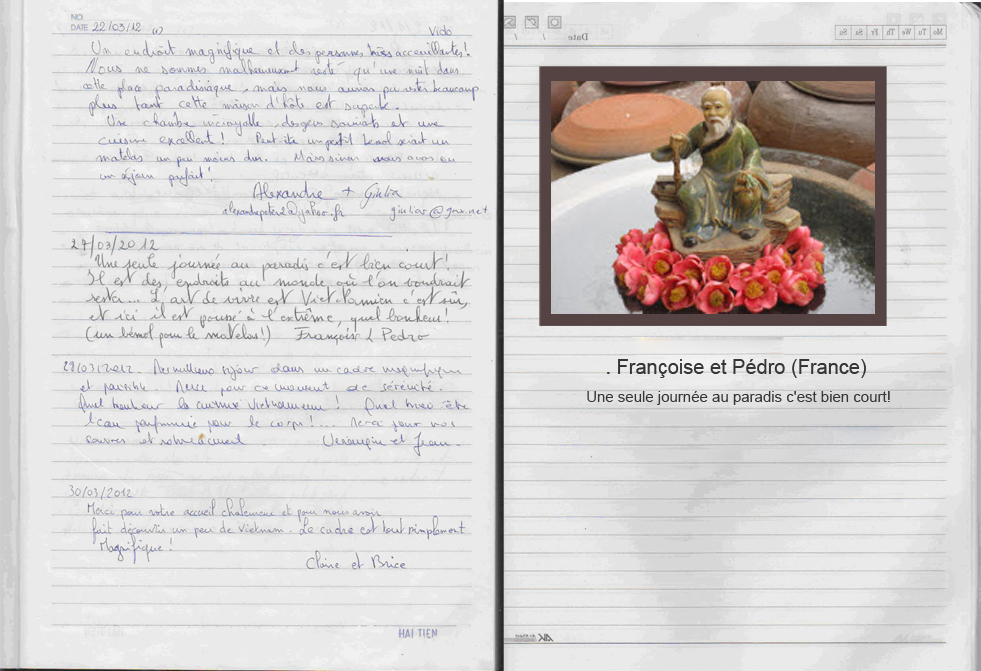 NO.
DATE 22/03/12 (1) Vido
Un endroit magnifique et des personnes très acceuillantes!
Nous ne sommes malheureusement resté qu'une nuit dans
cette place paradisiaque, mais nous aurions pu rester beaucoup
plus tant cette maison d'hôte est superbe.
Une chambre incroyable, des gens souriants et une
cuisine excellent! Peut être un petit bemol serait un
matelas un peu moins dur. Mais sinon nous avons eu
un séjour parfait!
Alexandre + Giulia
@yahoo.fr @gmx.net
27/03/2012
Une seule journée au paradis c'est bien court!
Il est des endroits au monde où l'on voudrait
rester... L'art de vivre est Vietnamien c'est sûr,
et ici il est poussé à l'extrême, quel bonheur!
(un bémol pour le matelas!) Françoise & Pedro
29/03/2012. Merveilleux séjour dans un cadre magnifique
et paisible. Merci pour ce moment de sérénité.
Quel bonheur la cuisine Vietnamienne! Quel bien être
l'eau parfumée pour le corps!... Merci pour vos
sourires et et Jean.
30/03/2012
Merci pour votre accueil chaleureux et pour nous avoir
fait découvrir un peu de Vietnam. Le cadre est tout simplement
Magnifique!
Claire et Brice
HAI TIEN
Date / /
Mo Tu We Th Fr Sa Su
. Françoise et Pédro (France)
Une seule journée au paradis c'est bien court!